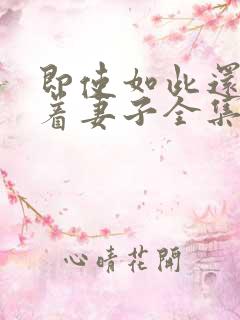 即使如此還
着妻子全集
心晴花開